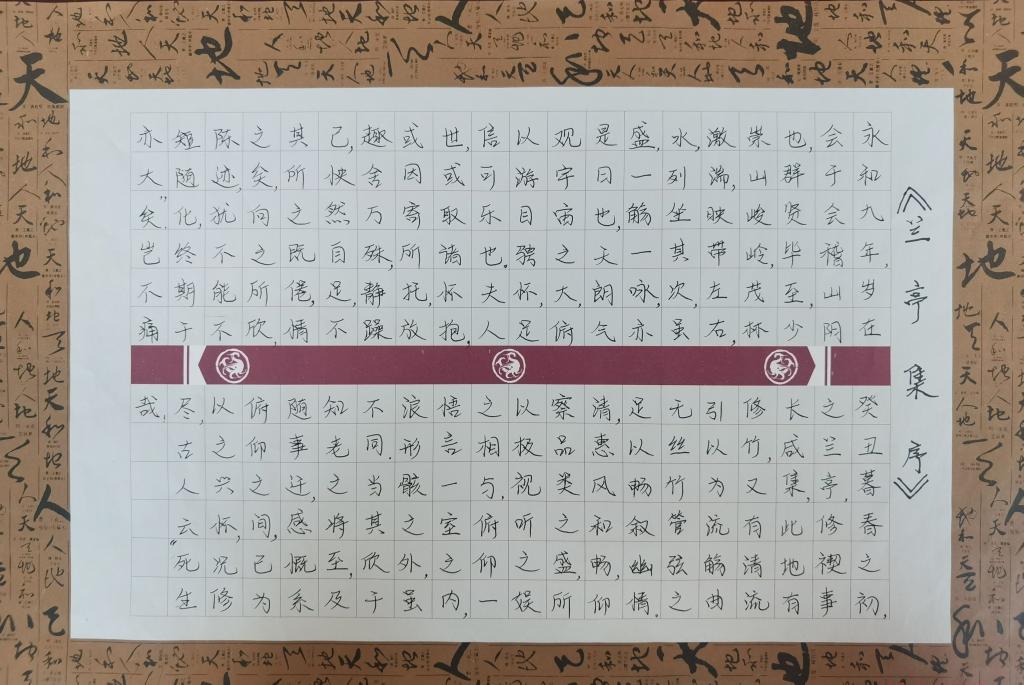 《兰亭集序》
永和九年,岁在癸丑暮春之初,
会于会稽山阴之兰亭,修禊事
也,群贤毕至,少长咸集,此地有
崇山峻岭,茂林修竹,又有清流
激湍,映带左右,引以为流觞曲
水,列坐其次,虽无丝竹管弦之
盛,一觞一咏,亦足以畅叙幽情.
是日也,天朗气清,惠风和畅,仰
观宇宙之大,俯察品类之盛,所
以游目骋怀,足以极视听之娱
信可乐也.夫人之相与,俯仰一
世,或取诸怀抱,悟言一室之内,
或因寄所托,放浪形骸之外,虽
趣舍万殊,静躁不同.当其欣于
己,快然自足,不知老之将至,及
其所之既倦,情随事迁,感慨系
之矣,向之所欣,俯仰之间,已为
陈迹,犹不能不以之兴怀,况修
短随化,终期于尽.古人云"死生
亦大矣"岂不痛哉.